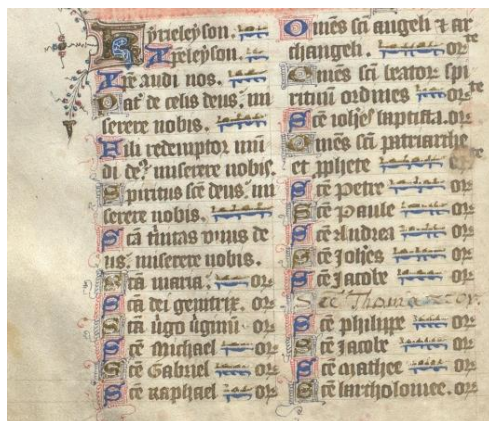 Kyrieleyson.
Xpeleyson.
Xpe audi nos.
Pat' de celis deus, mi
serere nobis.
Fili redemptor mũ
di de9 miserere nobis.
Spiritus scẽ deus, mi
serere nobis.
Scã tĩnitas vnus de
us, miserere nobis.
Scã maria. or
Scã dei genitrix. or
Scã ṽgo ṽginũ. or
Scẽ Michael or
Scẽ Gabriel or
Scẽ Raphael or
Omẽs scĩ angeli et ar
changeli. orte
Omẽs scĩ beator spi
rituũ ordines orte
Scẽ iohẽs baptista. or
Omẽs scĩ patriarche
et pphete orte
Scẽ Petre or
Scẽ Paule or
Scẽ Andrea or
Scẽ Johẽs or
Scẽ Jacobe or
Sce Thoma or.
Scẽ philippe or
Scẽ Jacobe or
Scẽ mathee or
Scẽ bartholomee. or